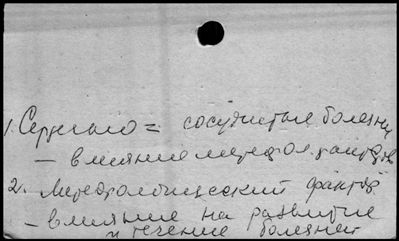 1. Сердечно = сосудистые болезни
— влияние метеорол. факторов
2. Метеорологический фактор
— влияние на развитие
и течение болезней